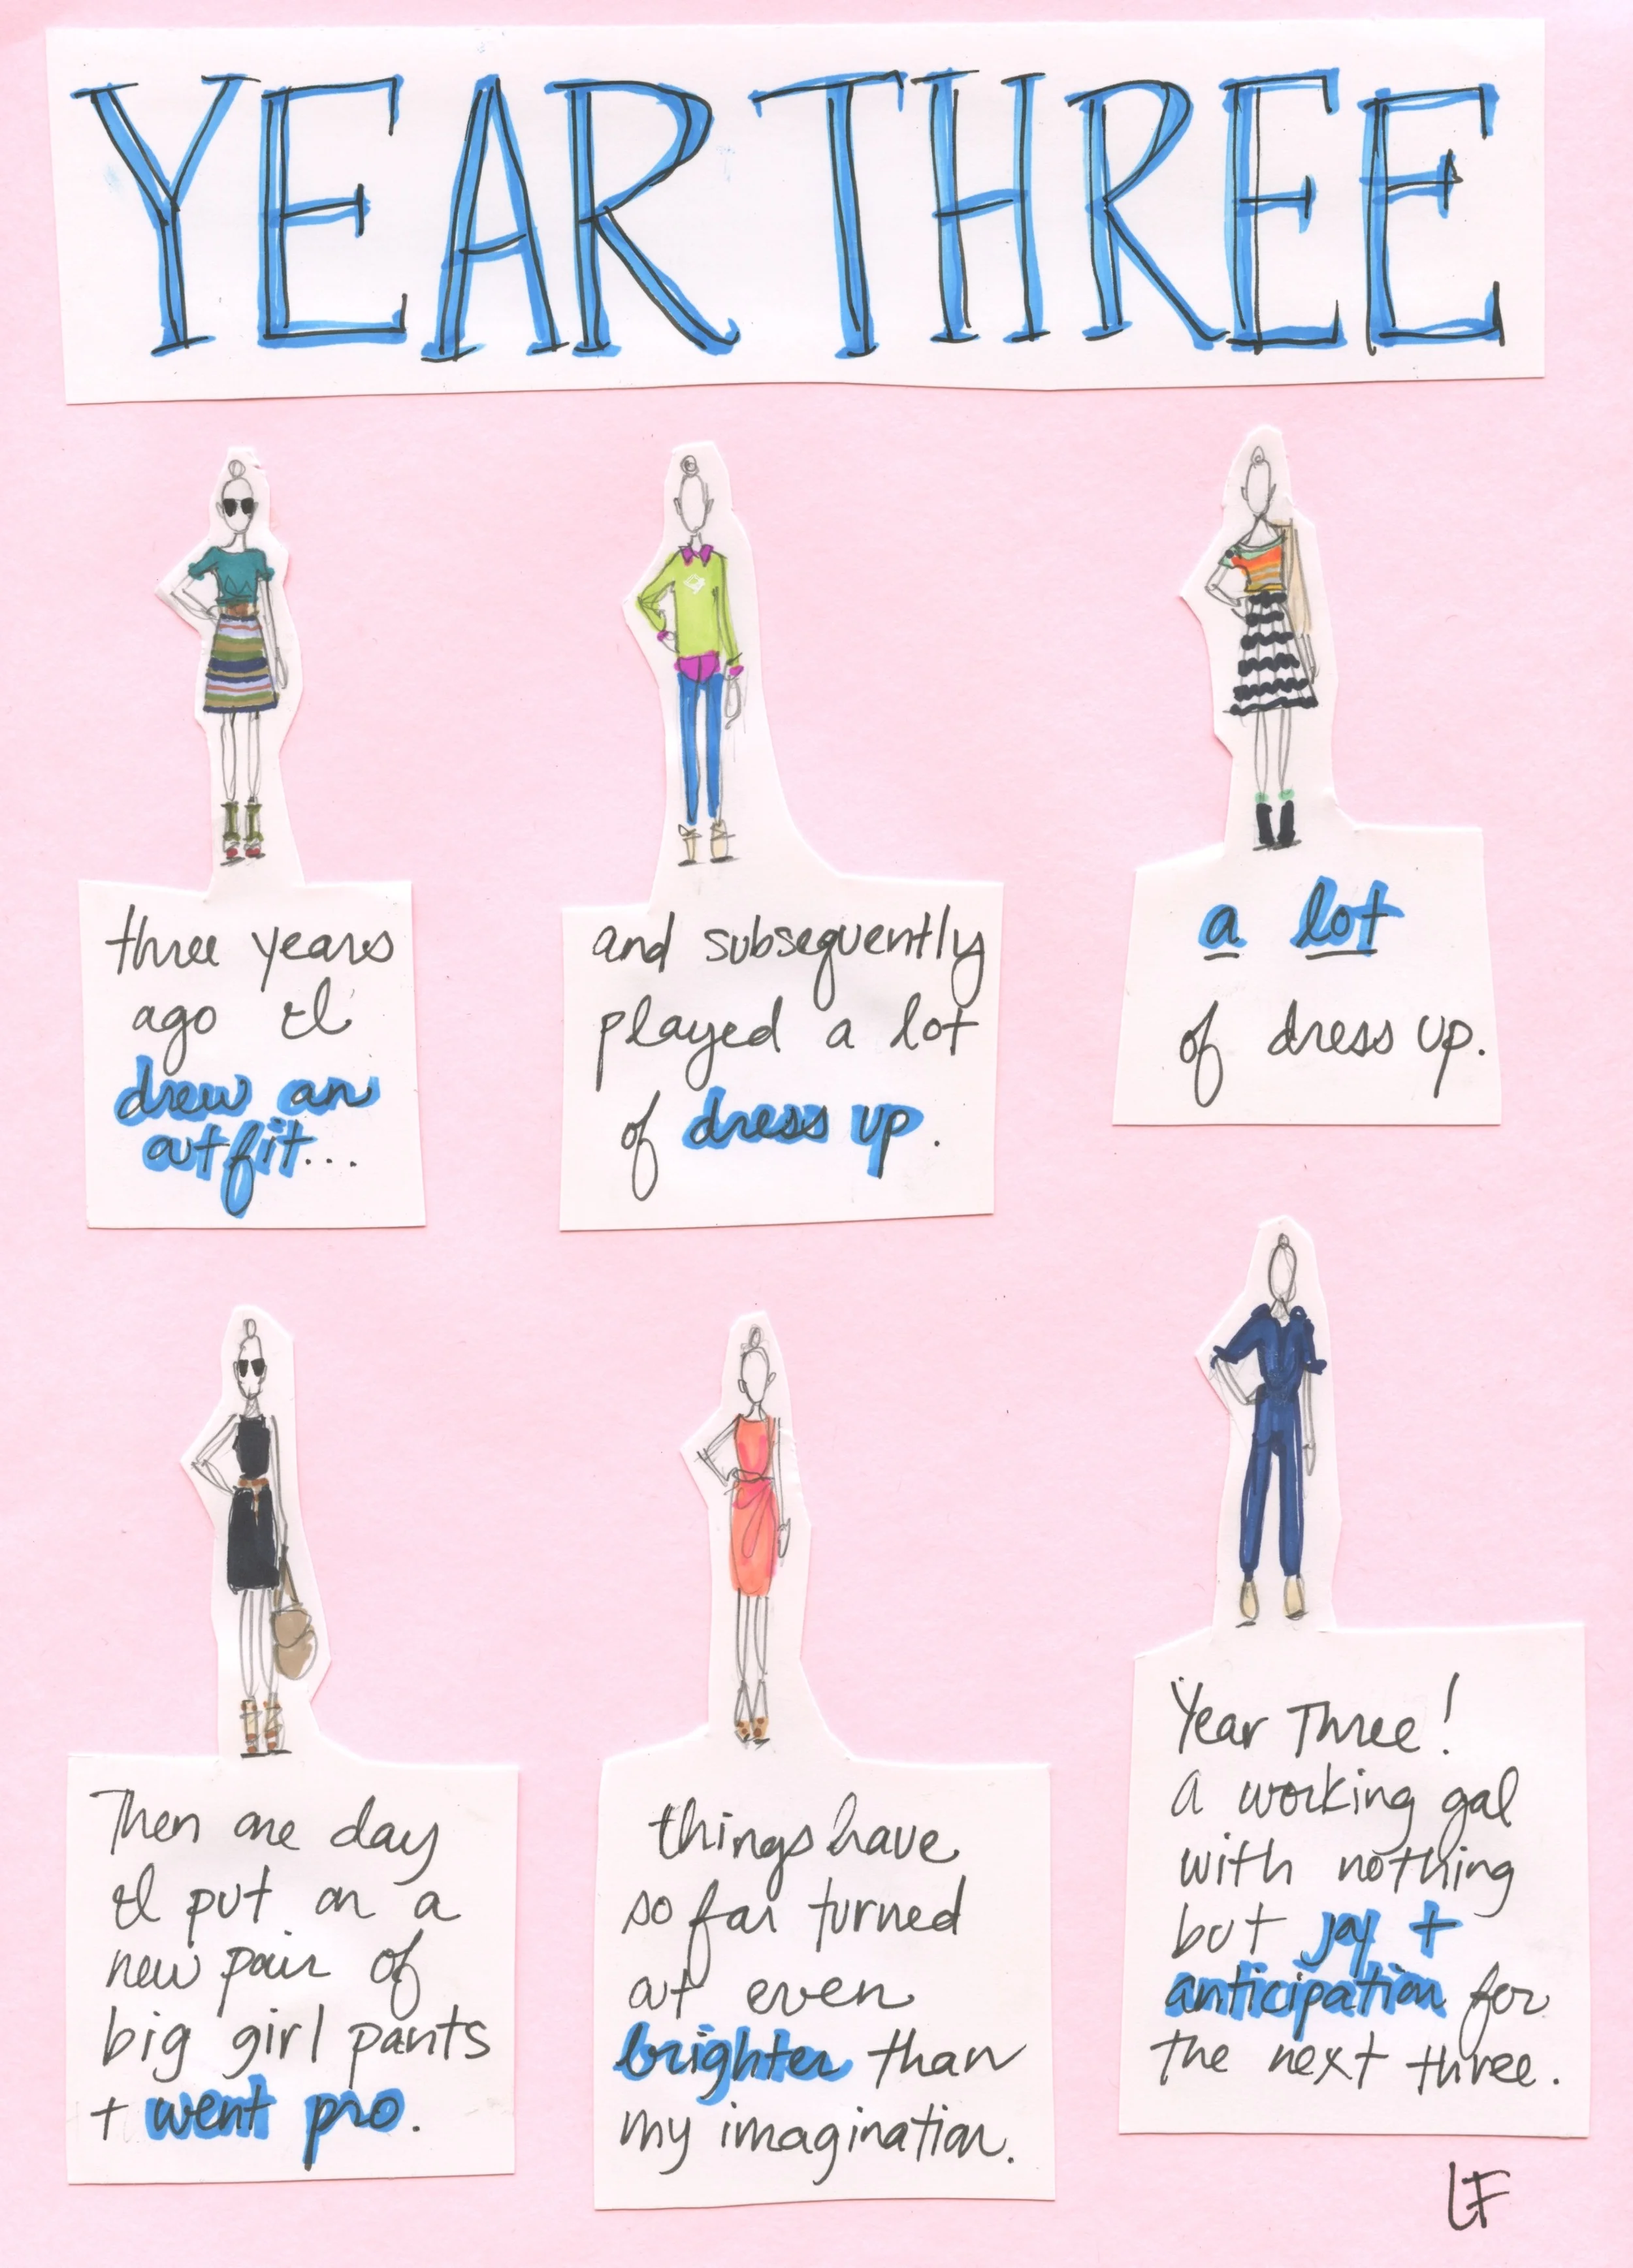 YEAR THREE
three years
ago I
drew an
outfit...
and subsequently
played a lot
of dress up.
a lot
of dress up.
Then one day
I put on a
new pair of
big girl pants
+ went pro.
things have
so far turned
out even
brighter than
my imagination.
Year Three!
a working gal
with nothing
but joy +
anticipation for
the next three.
LF